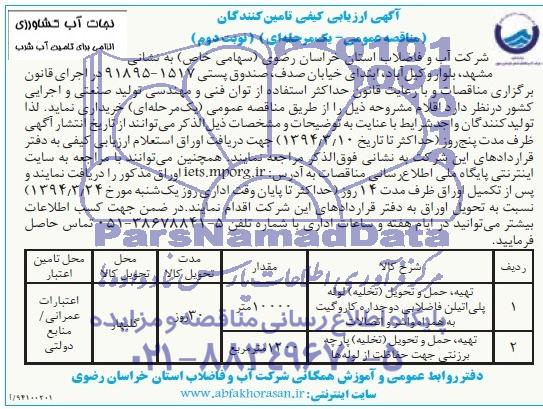 آگهی ارزیابی کیفی تامین‌کنندگان
(مناقصه عمومی - یک‌مرحله‌ای) (نوبت دوم)
نجات آب کشاورزی
الزامی برای تامین آب شرب
شرکت آب و فاضلاب استان خراسان رضوی (سهامی خاص) به نشانی
مشهد، بلوار وکیل‌آباد، ابتدای خیابان صدف، صندوق پستی ۱۵۱۷-۹۱۸۹۵ در اجرای قانون
برگزاری مناقصات و با رعایت قانون حداکثر استفاده از توان فنی و مهندسی تولید صنعتی و اجرایی
کشور درنظر دارد اقلام مشروحه ذیل را از طریق مناقصه عمومی (یک‌مرحله‌ای) خریداری نماید. لذا
تولیدکنندگان واجدشرایط با عنایت به توضیحات و مشخصات ذیل‌الذکر می‌توانند از تاریخ انتشار آگهی
ظرف مدت پنج‌روز (حداکثر تا تاریخ ۱۳۹۴/۳/۱۰) جهت دریافت اوراق استعلام ارزیابی کیفی به دفتر
قراردادهای این شرکت به نشانی فوق‌الذکر مراجعه نمایند. همچنین می‌توانند با مراجعه به سایت
اینترنتی پایگاه ملی اطلاع‌رسانی مناقصات به آدرس: iets.mporg.ir اوراق مذکور را دریافت نمایند و
پس از تکمیل اوراق ظرف مدت ۱۴ روز (حداکثر تا پایان وقت اداری روز یک‌شنبه مورخ ۱۳۹۴/۳/۲۴)
نسبت به تحویل اوراق به دفتر قراردادهای این شرکت اقدام نمایند. در ضمن جهت کسب اطلاعات
بیشتر می‌توانید در ایام هفته و ساعات اداری با شماره تلفن ۵-۳۸۶۷۸۸۴۱-۰۵۱ تماس حاصل
فرمایید.
ردیف شرح کالا مقدار مدت تحویل کالا محل تحویل کالا محل تامین اعتبار
۱ تهیه، حمل و تحویل (تخلیه) لوله پلی‌اتیلن فاضلابی دوجداره کاروگیت به همراه واشر و اتصالات ۱۰۰۰۰ متر ۳۰روز گلبهار اعتبارات عمرانی/ منابع دولتی
۲ تهیه، حمل و تحویل (تخلیه) پارچه برزنتی جهت حفاظت از لوله‌ها ۱۲۰۰ مترمربع
دفتر روابط عمومی و آموزش همگانی شرکت آب و فاضلاب استان خراسان رضوی
سایت اینترنتی: www.abfakhorasan.ir
۹۴۱۰۰۲۰۱/آ
ParsNamadData
پایگاه اطلاع رسانی مناقصه و مزایده
۰۲۱-۸۸۳۴۹۶۷۰-۵